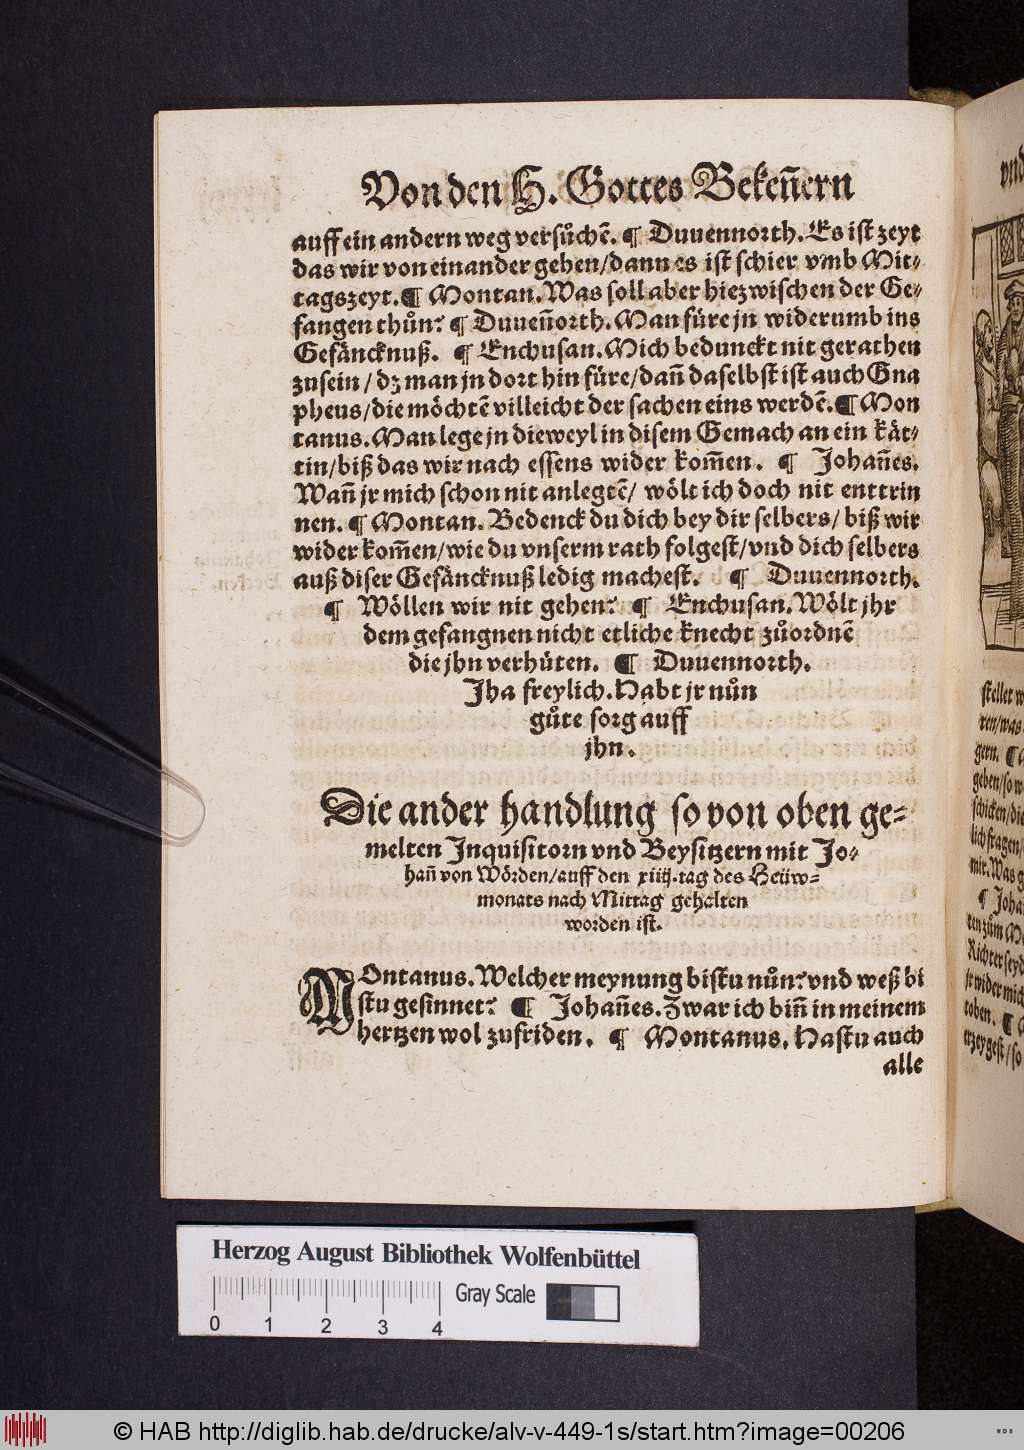 Von den H. Gottes Bekeñern
auff ein andern weg versůchẽ. ¶ Duuennorth. Es ist zeyt
das wir von einander gehen/dann es ist schier vmb Mit-
tagszeyt. ¶ Montan. Was soll aber hiezwischen der Ge-
fangen thůn? ¶ Duueñorth. Man füre jn widerumb ins
Gefäncknuß. ¶ Enchusan. Mich bedunckt nit gerathen
zusein/dz man jn dort hin füre/dañ daselbst ist auch Gna
pheus/die möchtẽ villeicht der sachen eins werdẽ. ¶ Mon
tanus. Man lege jn dieweyl in disem Gemach an ein kät-
tin/biß das wir nach essens wider kom̃en. ¶ Johañes.
Wañ jr mich schon nit anlegtẽ/ wölt ich doch nit enttrin
nen. ¶ Montan. Bedenck du dich bey dir selbers/ biß wir
wider kom̃en/wie du vnserm rath folgest/vnd dich selbers
auß diser Gefäncknuß ledig machest. ¶ Duuennorth.
¶ Wöllen wir nit gehen? ¶ Enchusan. Wölt jhr
dem gefangnen nicht etliche knecht zůordnẽ
die jhn verhüten. ¶ Duuennorth.
Jha freylich. Habt jr nůn
gůte sorg auff
jhn.
Die ander handlung so von oben ge-
melten Jnquisitorn vnd Beysitzern mit Jo-
hañ von Wörden/auff den xiiij. tag des Heüw-
monats nach Mittag gehalten
worden ist.
MOntanus. Welcher meynung bistu nůn? vnd weß bi
stu gesinnet? ¶ Johañes. Zwar ich biñ in meinem
hertzen wol zufriden. ¶ Montanus. Hastu auch
alle
vnd
stellet w
ren/was
gern. ¶
geben/so w
schicken/die
lich fragen/
mir. Was g
¶ Joha
ten zům Mo
Richter seyd
jr wider mich
toben. ¶
erzeygst/so
Herzog August Bibliothek Wolfenbüttel
Gray Scale
0 1 2 3 4
© HAB http://diglib.hab.de/drucke/alv-v-449-1s/start.htm?image=00206